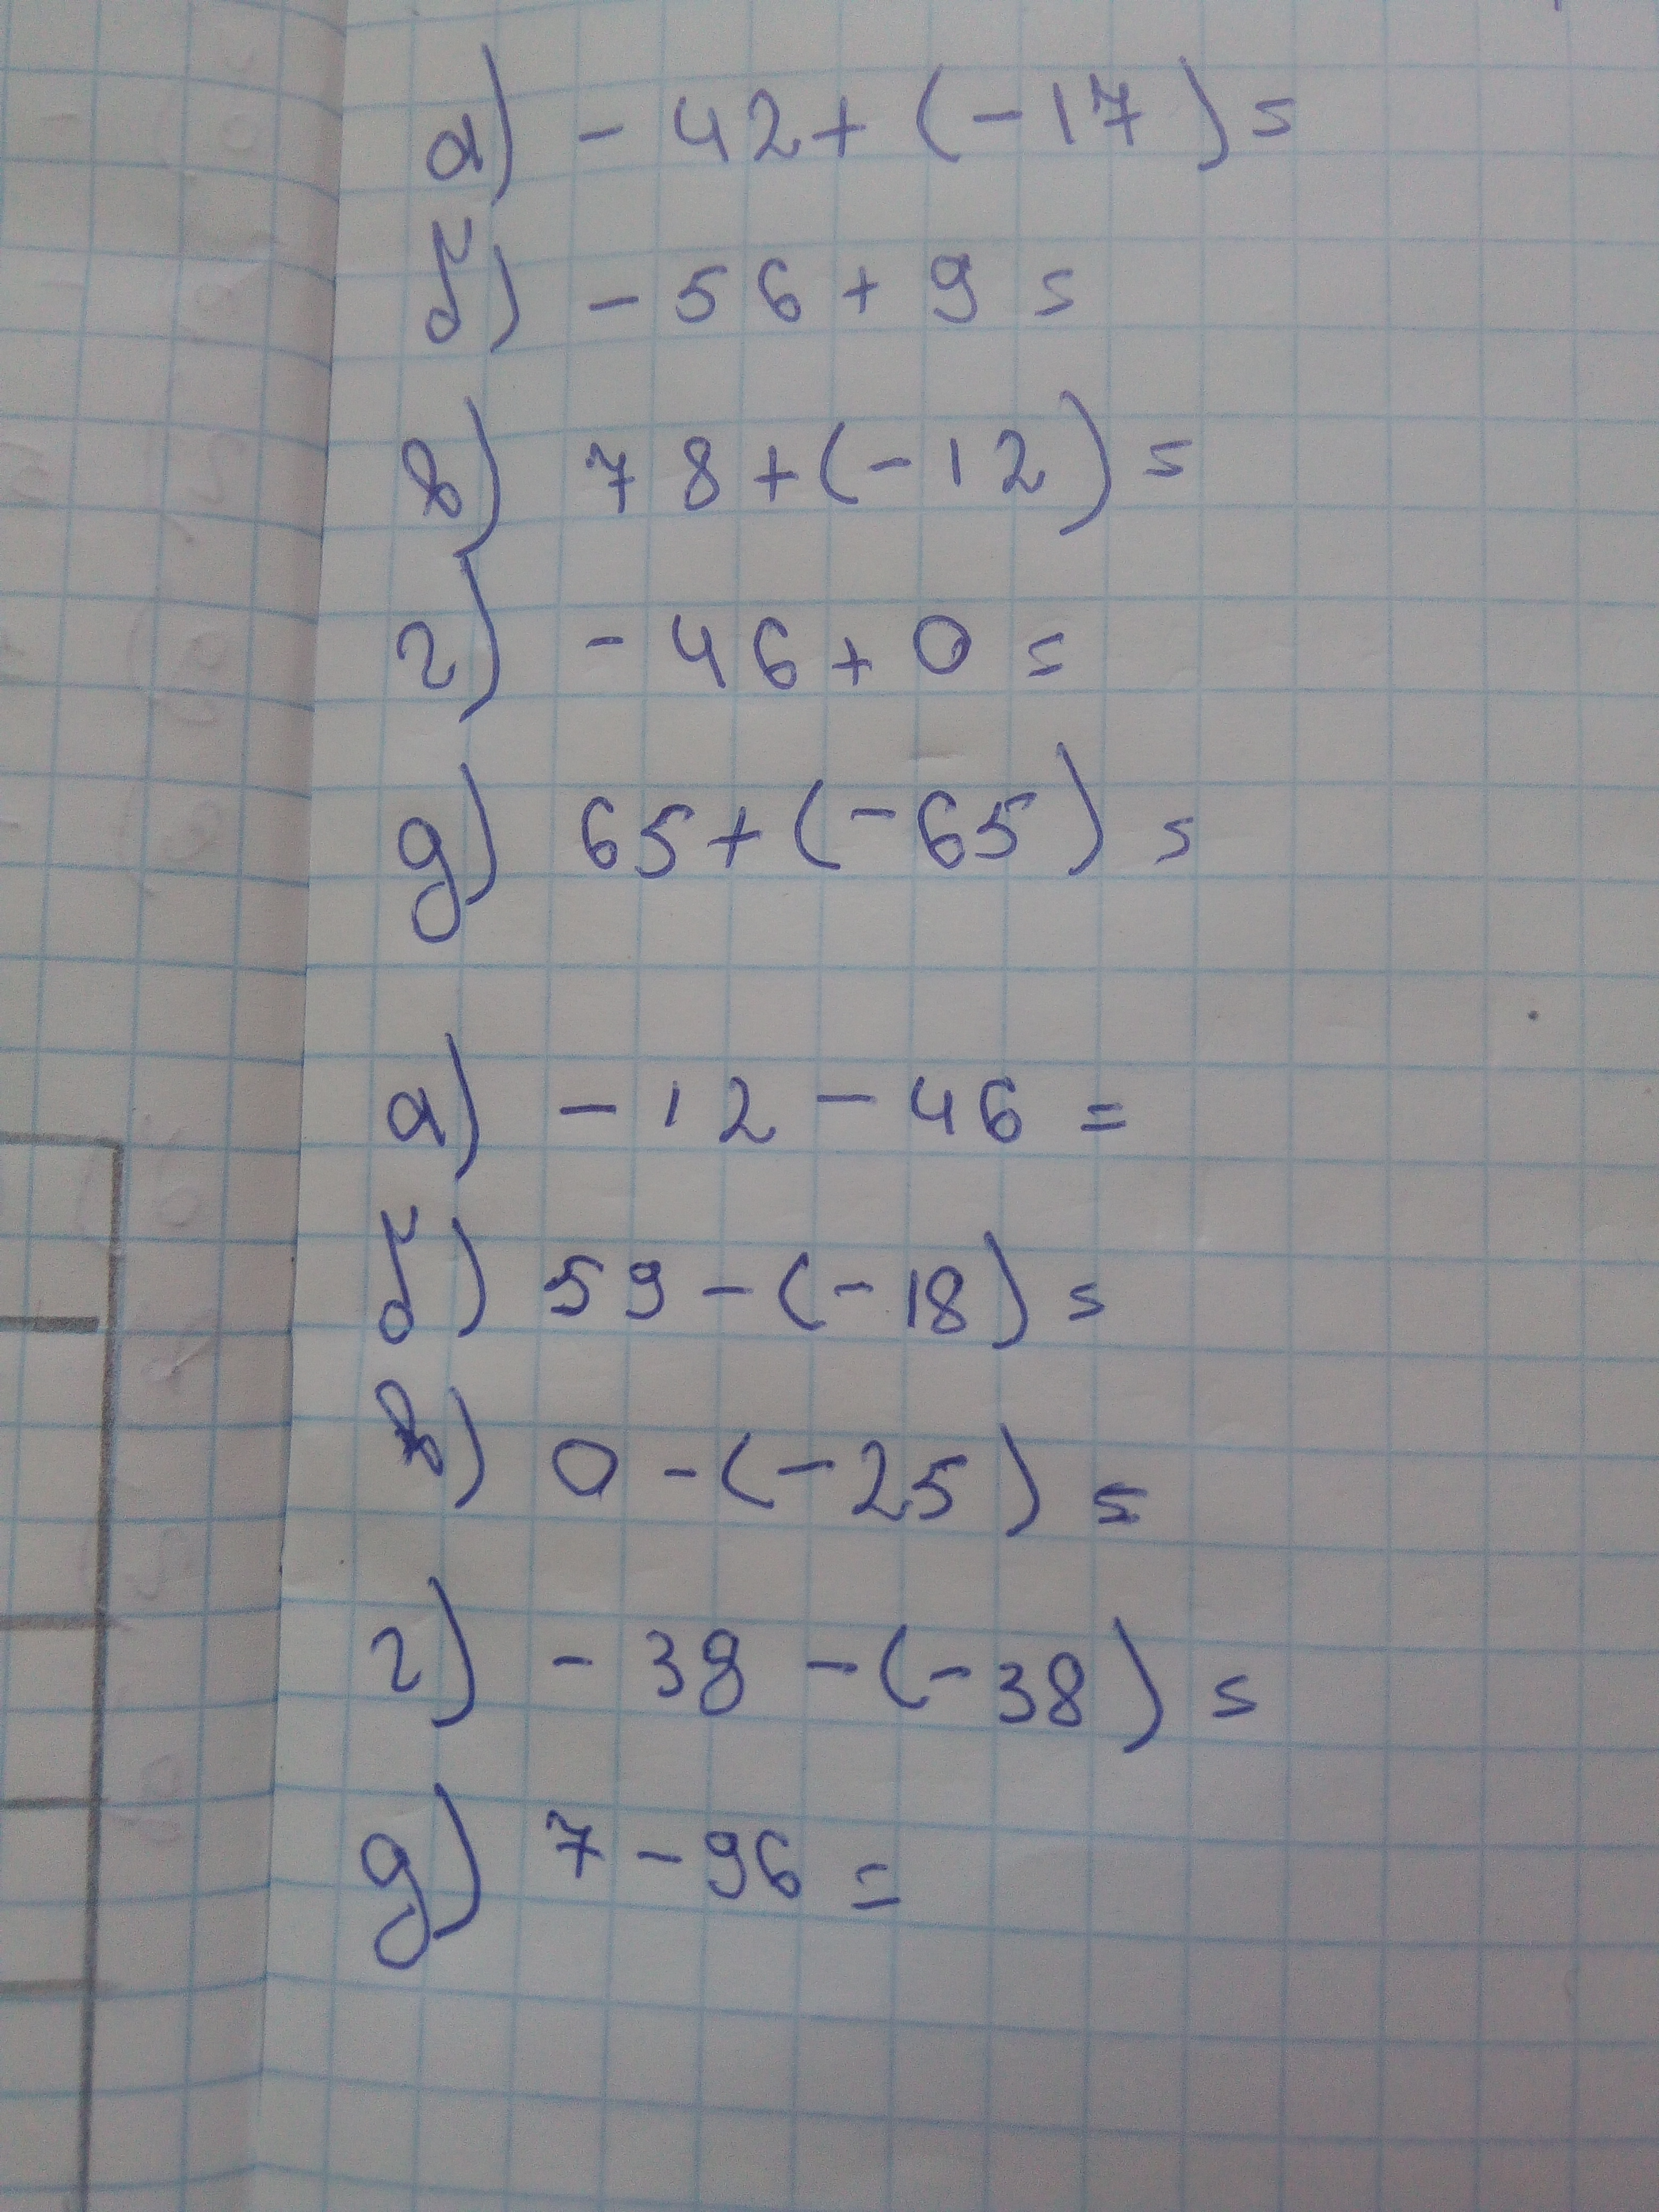 а) - 42 + (-17) =
б) - 56 + 9 =
в) 78 + (-12) =
г) - 46 + 0 =
д) 65 + (-65) =
а) - 12 - 46 =
б) 59 - (-18) =
в) 0 - (-25) =
г) - 38 - (-38) =
д) 7 - 96 =